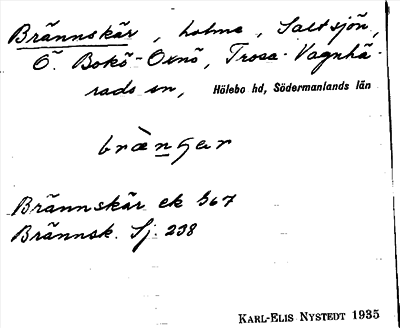 Brännskär, holme, Saltsjön,
Ö. Bokö-Oxnö, Trosa-Vagnhä-
rads sn, Hölebo hd, Södermanlands län
Brännskär ek 367
Brännsk. Sj. 238
KARL-ELIS NYSTEDT 1935